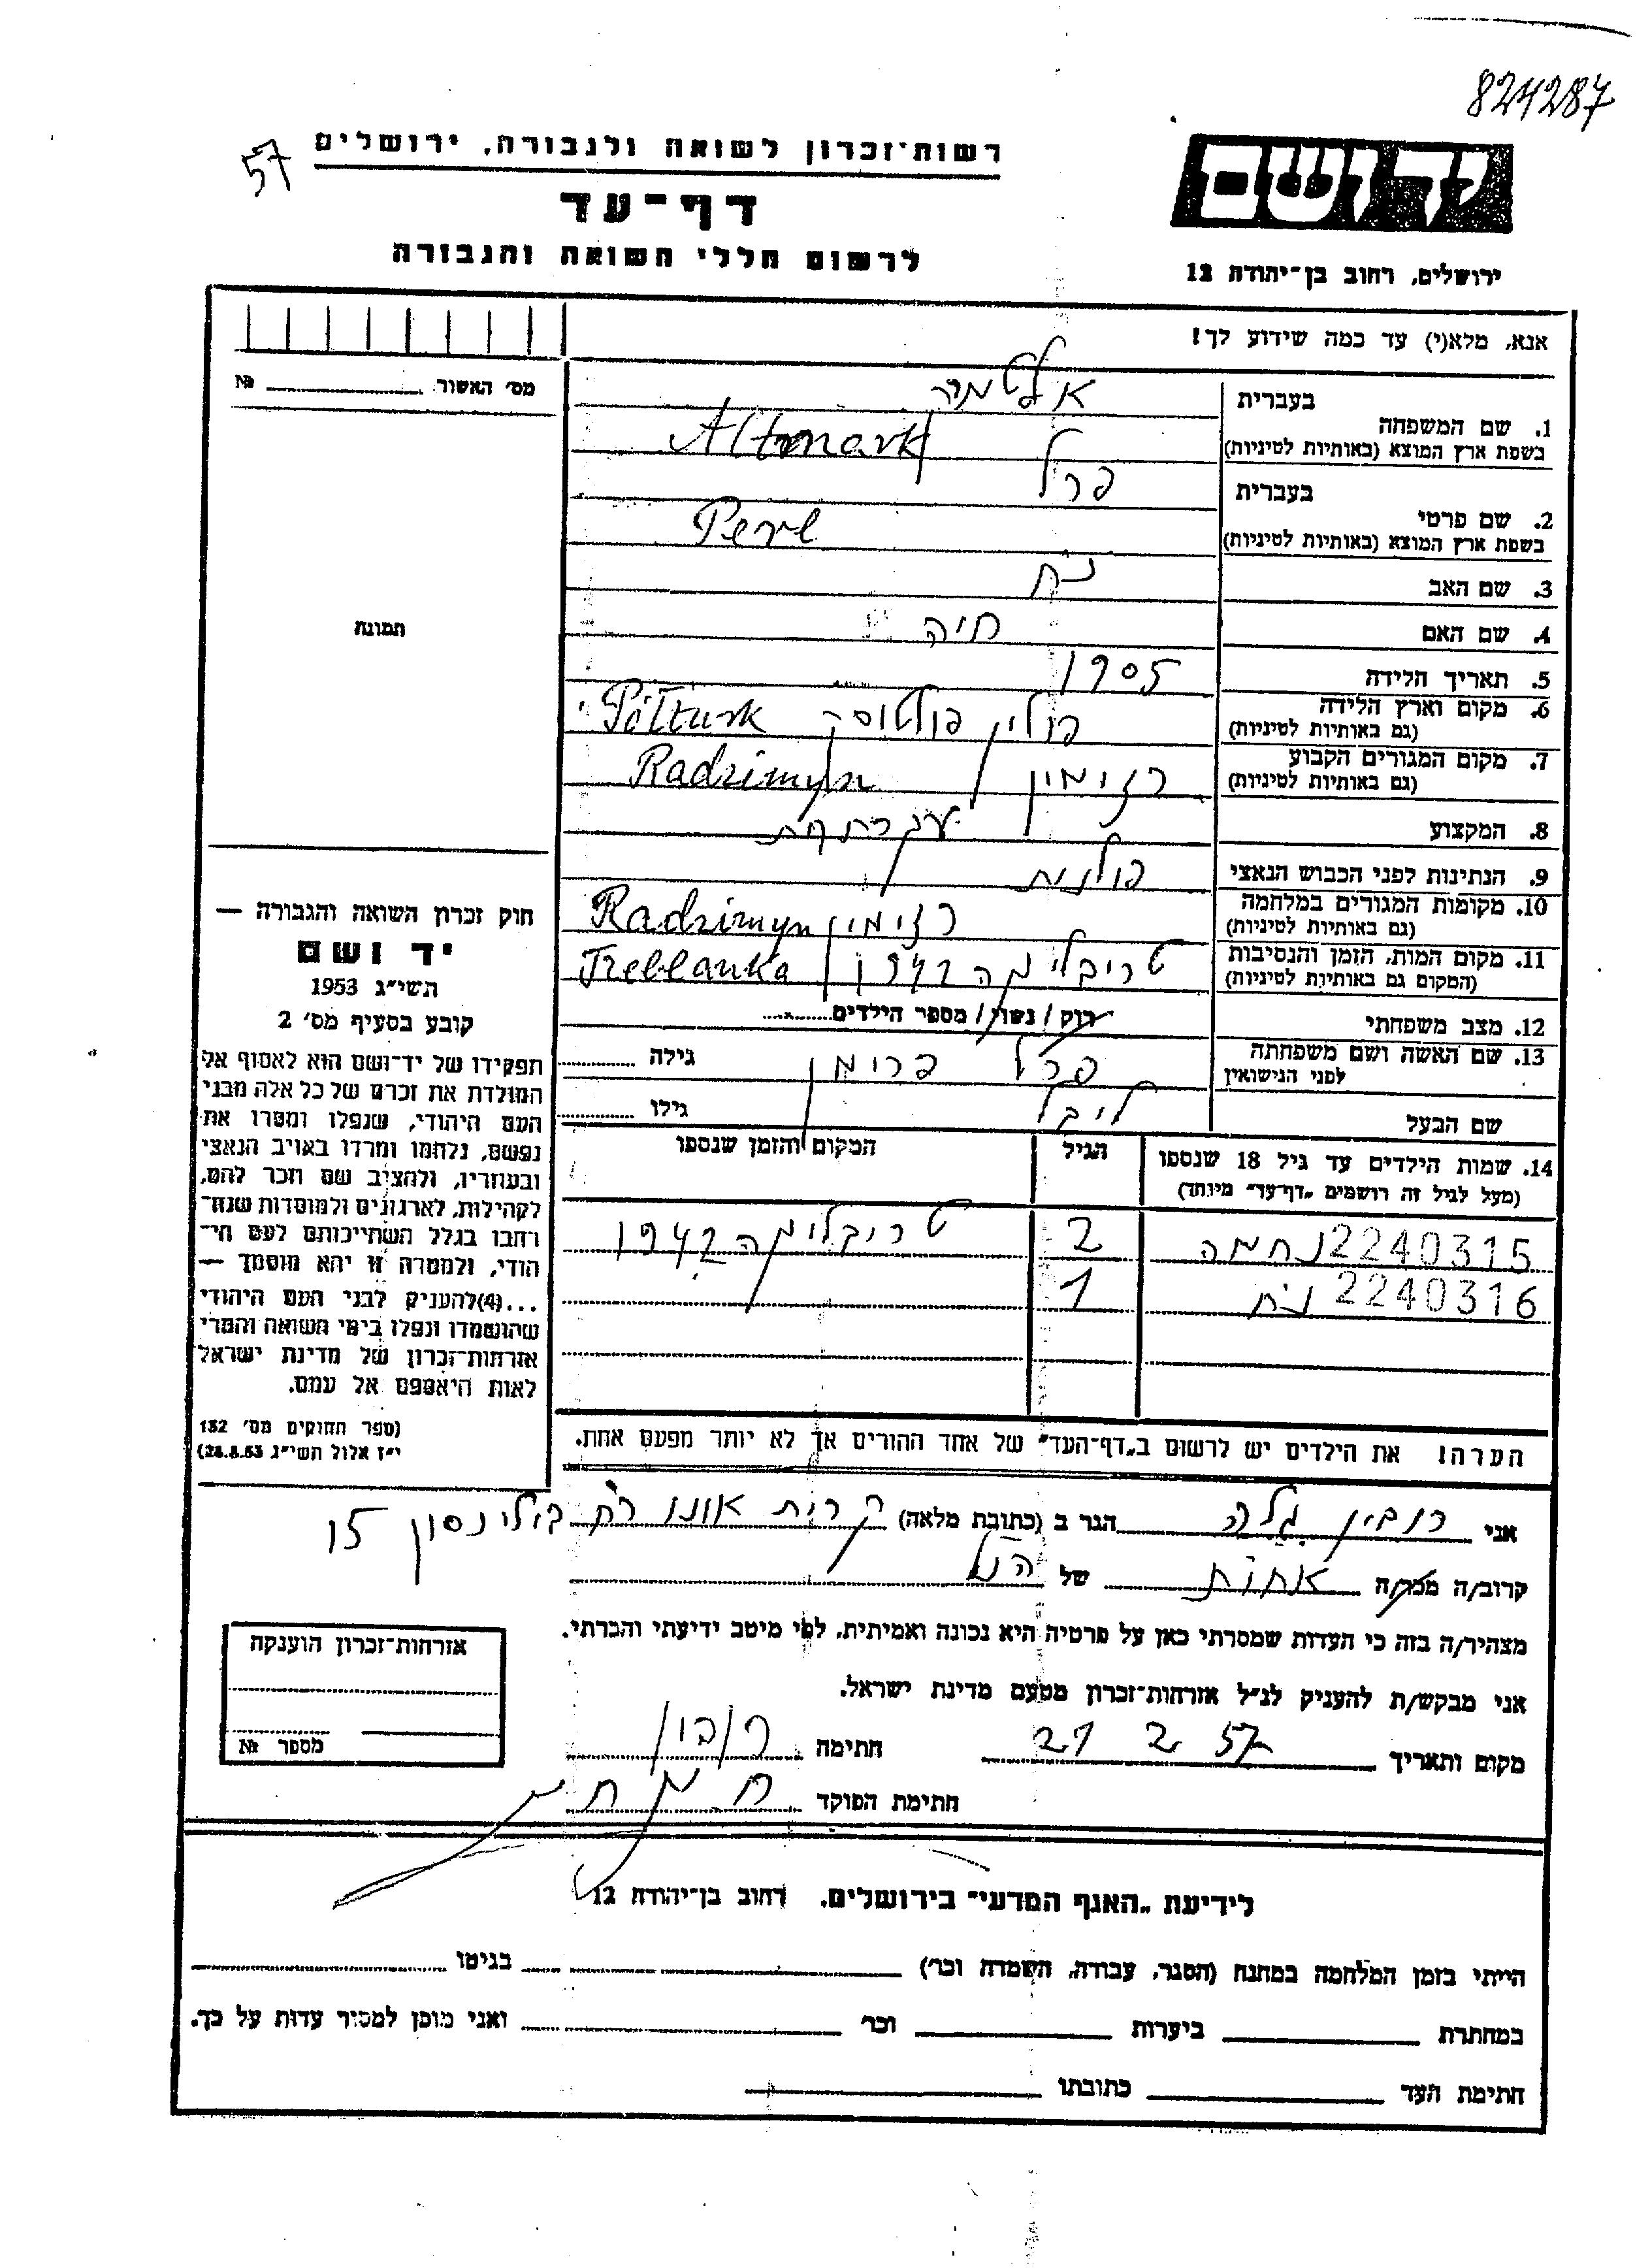 824287
57
רשות־זכרון לשואה ולגבורה, ירושלים
דף־עד
לרשום חללי השואה והגבורה
יד ושם
ירושלים, רחוב בן־יהודה 12
אנא, מלא(י) עד כמה שידוע לך!
מס׳ האשור № 
בעברית
1. שם המשפחה
בשפת ארץ המוצא (באותיות לטיניות)
Altmark
בעברית פרל
2. שם פרטי
בשפת ארץ המוצא (באותיות לטיניות) Perl
3. שם האב נח
4. שם האם חיה
תמונה
5. תאריך הלידה 1905
6. מקום וארץ הלידה פולין פולטוסק Pöltusk
(גם באותיות לטיניות)
7. מקום המגורים הקבוע רזימין Radzimyn
(גם באותיות לטיניות)
8. המקצוע
9. הנתינות לפני הכבוש הנאצי פולנית
10. מקומות המגורים במלחמה רזימין Radzimyn
(גם באותיות לטיניות)
11. מקום המות, הזמן והנסיבות טריבלינקה 1942 Treblanka
(המקום גם באותיות לטיניות)
12. מצב משפחתי רוק / נשוי / מספר הילדים
13. שם האשה ושם משפחתה פרל פרומן גילה
לפני הנישואין
שם הבעל ליבל גילו
14. שמות הילדים עד גיל 18 שנספו הגיל המקום והזמן שנספו
(מעל לגיל זה רושמים „דף־עד״ מיוחד)
2240315 נחמה 2 טריבלינקה 1942
2240316 נח 1
הערה! את הילדים יש לרשום ב„דף־העד״ של אחד ההורים אך לא יותר מפעם אחת.
חוק זכרון השואה והגבורה —
יד ושם
תשי״ג 1953
קובע בסעיף מס׳ 2
תפקידו של יד־ושם הוא לאסוף אל
המולדת את זכרם של כל אלה מבני
העם היהודי, שנפלו ומסרו את
נפשם, נלחמו ומרדו באויב הנאצי
ובעוזריו, ולהציב שם וזכר להם,
לקהילות, לארגונים ולמוסדות שנח־
רבו בגלל השתייכותם לעם הי־
הודי, ולמטרה זו יהא מוסמך —
...(4)להעניק לבני העם היהודי
שהושמדו ונפלו בימי השואה והמרי
אזרחות־זכרון של מדינת ישראל
לאות היאספם אל עמם.
(ספר החוקים מס׳ 132
י״ז אלול תשי״ג 28.8.53)
אני רובין גלה הגר ב (כתובת מלאה) קרית אונו רח בילינסון 15
קרוב/ה אחות של הנ״ל
מצהיר/ה בזה כי העדות שמסרתי כאן על פרטיה היא נכונה ואמיתית, לפי מיטב ידיעתי והכרתי.
אני מבקש/ת להעניק לנ״ל אזרחות־זכרון מטעם מדינת ישראל.
מקום ותאריך 21 2 57 חתימה רובין
חתימת הפוקד
אזרחות־זכרון הוענקה
מספר №
לידיעת „האגף המדעי״ בירושלים, רחוב בן־יהודה 12
הייתי בזמן המלחמה במחנה (הסגר, עבודה, השמדה וכו׳) בגיטו
במחתרת ביערות וכו׳ ואני מוכן למסור עדות על כך.
חתימת העד כתובתו